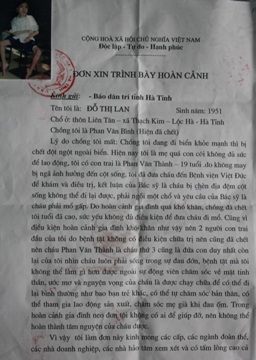 CỘNG HOÀ XÃ HỘI CHỦ NGHĨA VIỆT NAM
Độc lập - Tự do - Hạnh phúc
ĐƠN XIN TRÌNH BÀY HOÀN CẢNH
Kính gửi: - Báo dân trí tỉnh Hà Tĩnh
Tên tôi là: ĐỖ THỊ LAN Sinh năm: 1951
Chỗ ở: thôn Liên Tân – xã Thạch Kim – Lộc Hà - Hà Tĩnh
Chồng tôi là Phan Văn Bình (Hiện đã chết)
Lý do chồng tôi mất: Chồng tôi đang đi biển khỏe mạnh thì bị
chết đột ngột ngoài biển. Hiện nay tôi là mẹ quá con côi không đủ sức
để lao động, tôi có con trai là Phan Văn Thành – 19 tuổi do không may
bị ngã ảnh hưởng đến cột sống, tôi đã đưa cháu đến Bệnh viện Việt Đức
để khám và điều trị, kết luận của Bác sỹ là cháu bị chèn địa đệm cột
sống không thể đi lại được, phải ngồi một chỗ và yêu cầu của Bác sỹ là
cháu phải mổ gấp. Do hoàn cảnh gia đình quá khó khăn, chồng đã chết
tôi tuổi đã cao, sức yếu không đủ điều kiện để đưa cháu đi mổ. Cũng vì
điều kiện hoàn cảnh gia đình khó khăn như vậy nên 2 người con trai
đầu của tôi do bệnh tật không có điều kiện chữa trị nên cũng đã chết
nên cháu Phan Văn Thành là cháu thứ 3 cũng là đứa con duy nhất còn
lại của tôi nhìn cháu luôn phải sống trong sự đau đớn, bệnh tật mà tôi
không thể làm gì hơn được ngoài sự động viên chăm sóc về mặt tinh
thần, ước mơ và nguyện vọng của cháu là được chạy chữa để có thể đi
lại bình thường như bao bạn trẻ khác, có thể tự chăm sóc bản thân, có
thể tham gia lao động sản xuất, chăm sóc mẹ già khi đau ốm. Trong
hoàn cảnh gia đình neo đơn tôi không có ai để giúp đỡ, nên không thể
hoàn thành tâm nguyện của cháu được.
Vì vậy tôi làm đơn này kính mong các cấp, các ngành đoàn thể,
các nhà doanh nghiệp, các nhà hảo tâm xem xét và có tấm lòng cao cả